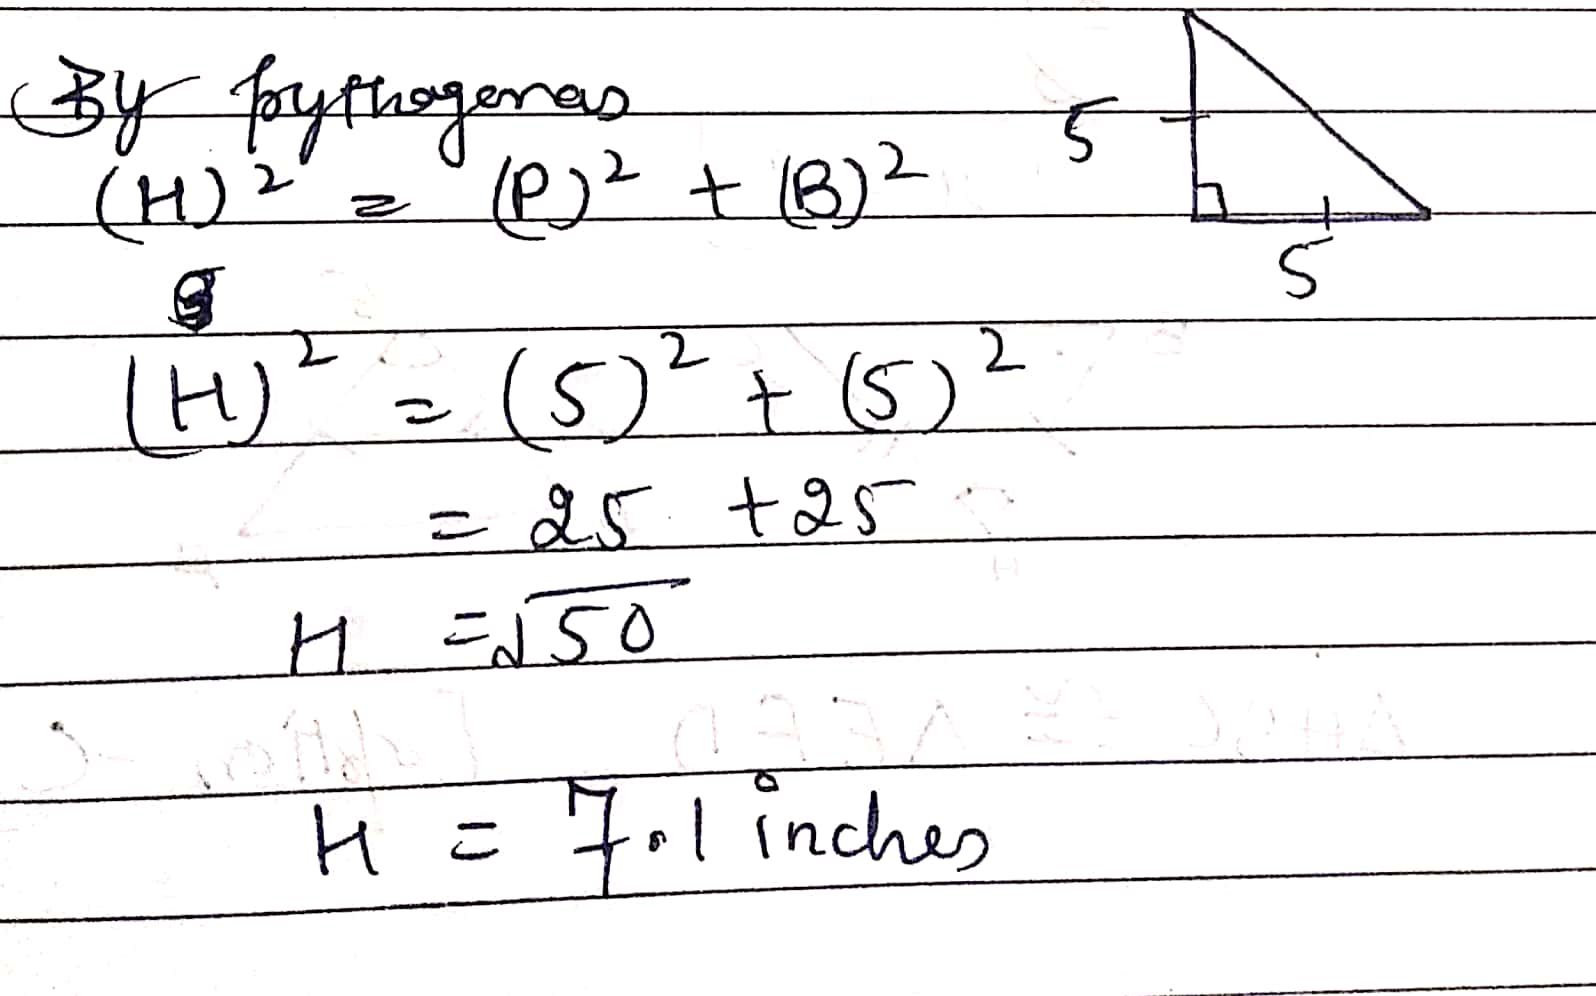 By pythagenas
(H)² = (P)² + (B)²
5
5
(H)² = (5)² + (5)²
= 25 + 25
H = √50
H = 7.1 inches